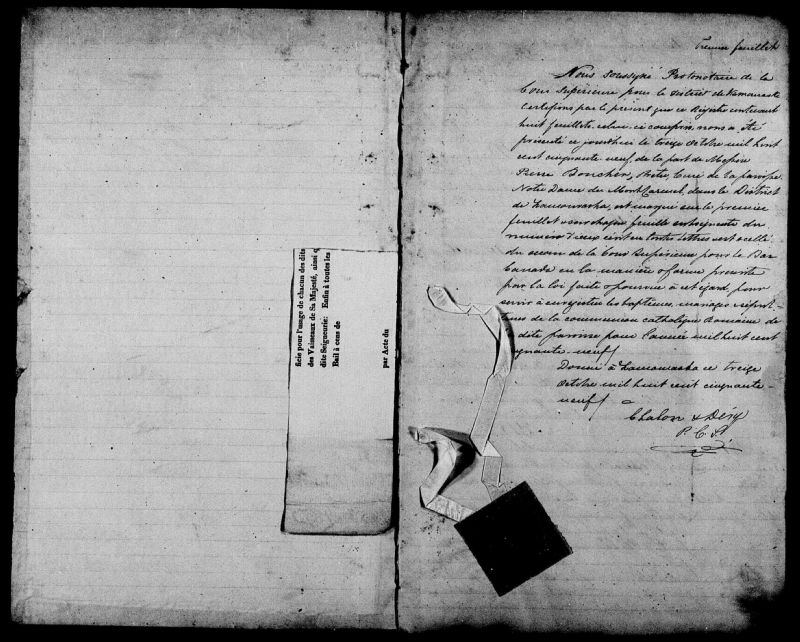 ficie pour l'usage de chacun des dits
des Vaisseaux de Sa Majesté, ainsi q
dite Seigneurie: Enfin à toutes les
Bail à cens de
par Acte du
feuillet
Nous soussigné Protonotaire de la
Cour Supérieure pour le District de Kamouraska
certifions par le présent que ce Registre contenant
huit feuillets, celui-ci compris, nous a été
présenté ce jourd'hui le treize Octobre mil huit
cent cinquante neuf, de la part de Messire
Pierre Boucher, Ptre, Curé de la paroisse
Notre Dame du Mont Carmel, dans le District
de Kamouraska, est marqué sur le premier
feuillet et sur chaque feuille subséquente du
numéro d'iceux écrit en toutes lettres et est scellé
du sceau de la Cour Supérieure pour le Bas
Canada en la manière et forme prescrite
par la loi faite et pourvue à cet égard, pour
servir à enregistrer les baptêmes, mariages et sépul-
tures de la communion catholique Romaine de
dite paroisse pour l'année mil huit cent
quante-neuf
Donné à Kamouraska ce treize
Octobre mil huit cent cinquante-
neuf
Chalou & Désy
P. C. S.